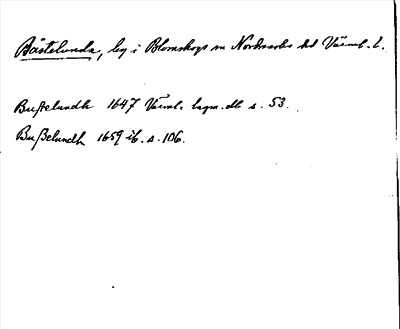 Båstelunda, by i Blomskogs sn Nordmarks hd Värml. l.
Bustelundh 1647 Värml. lagm.db s. 53.
Bußelundh 1659 ib. s. 106.